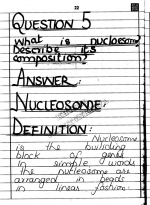 22
QUESTION 5
What is nucleosome?
Describe its
composition?
ANSWER:
NUCLEOSONDE:
DEFINITION:
Nucleosome
is the building
block of genes
in simple words
the nucleosome are
arranged in beads
in linear fashion.